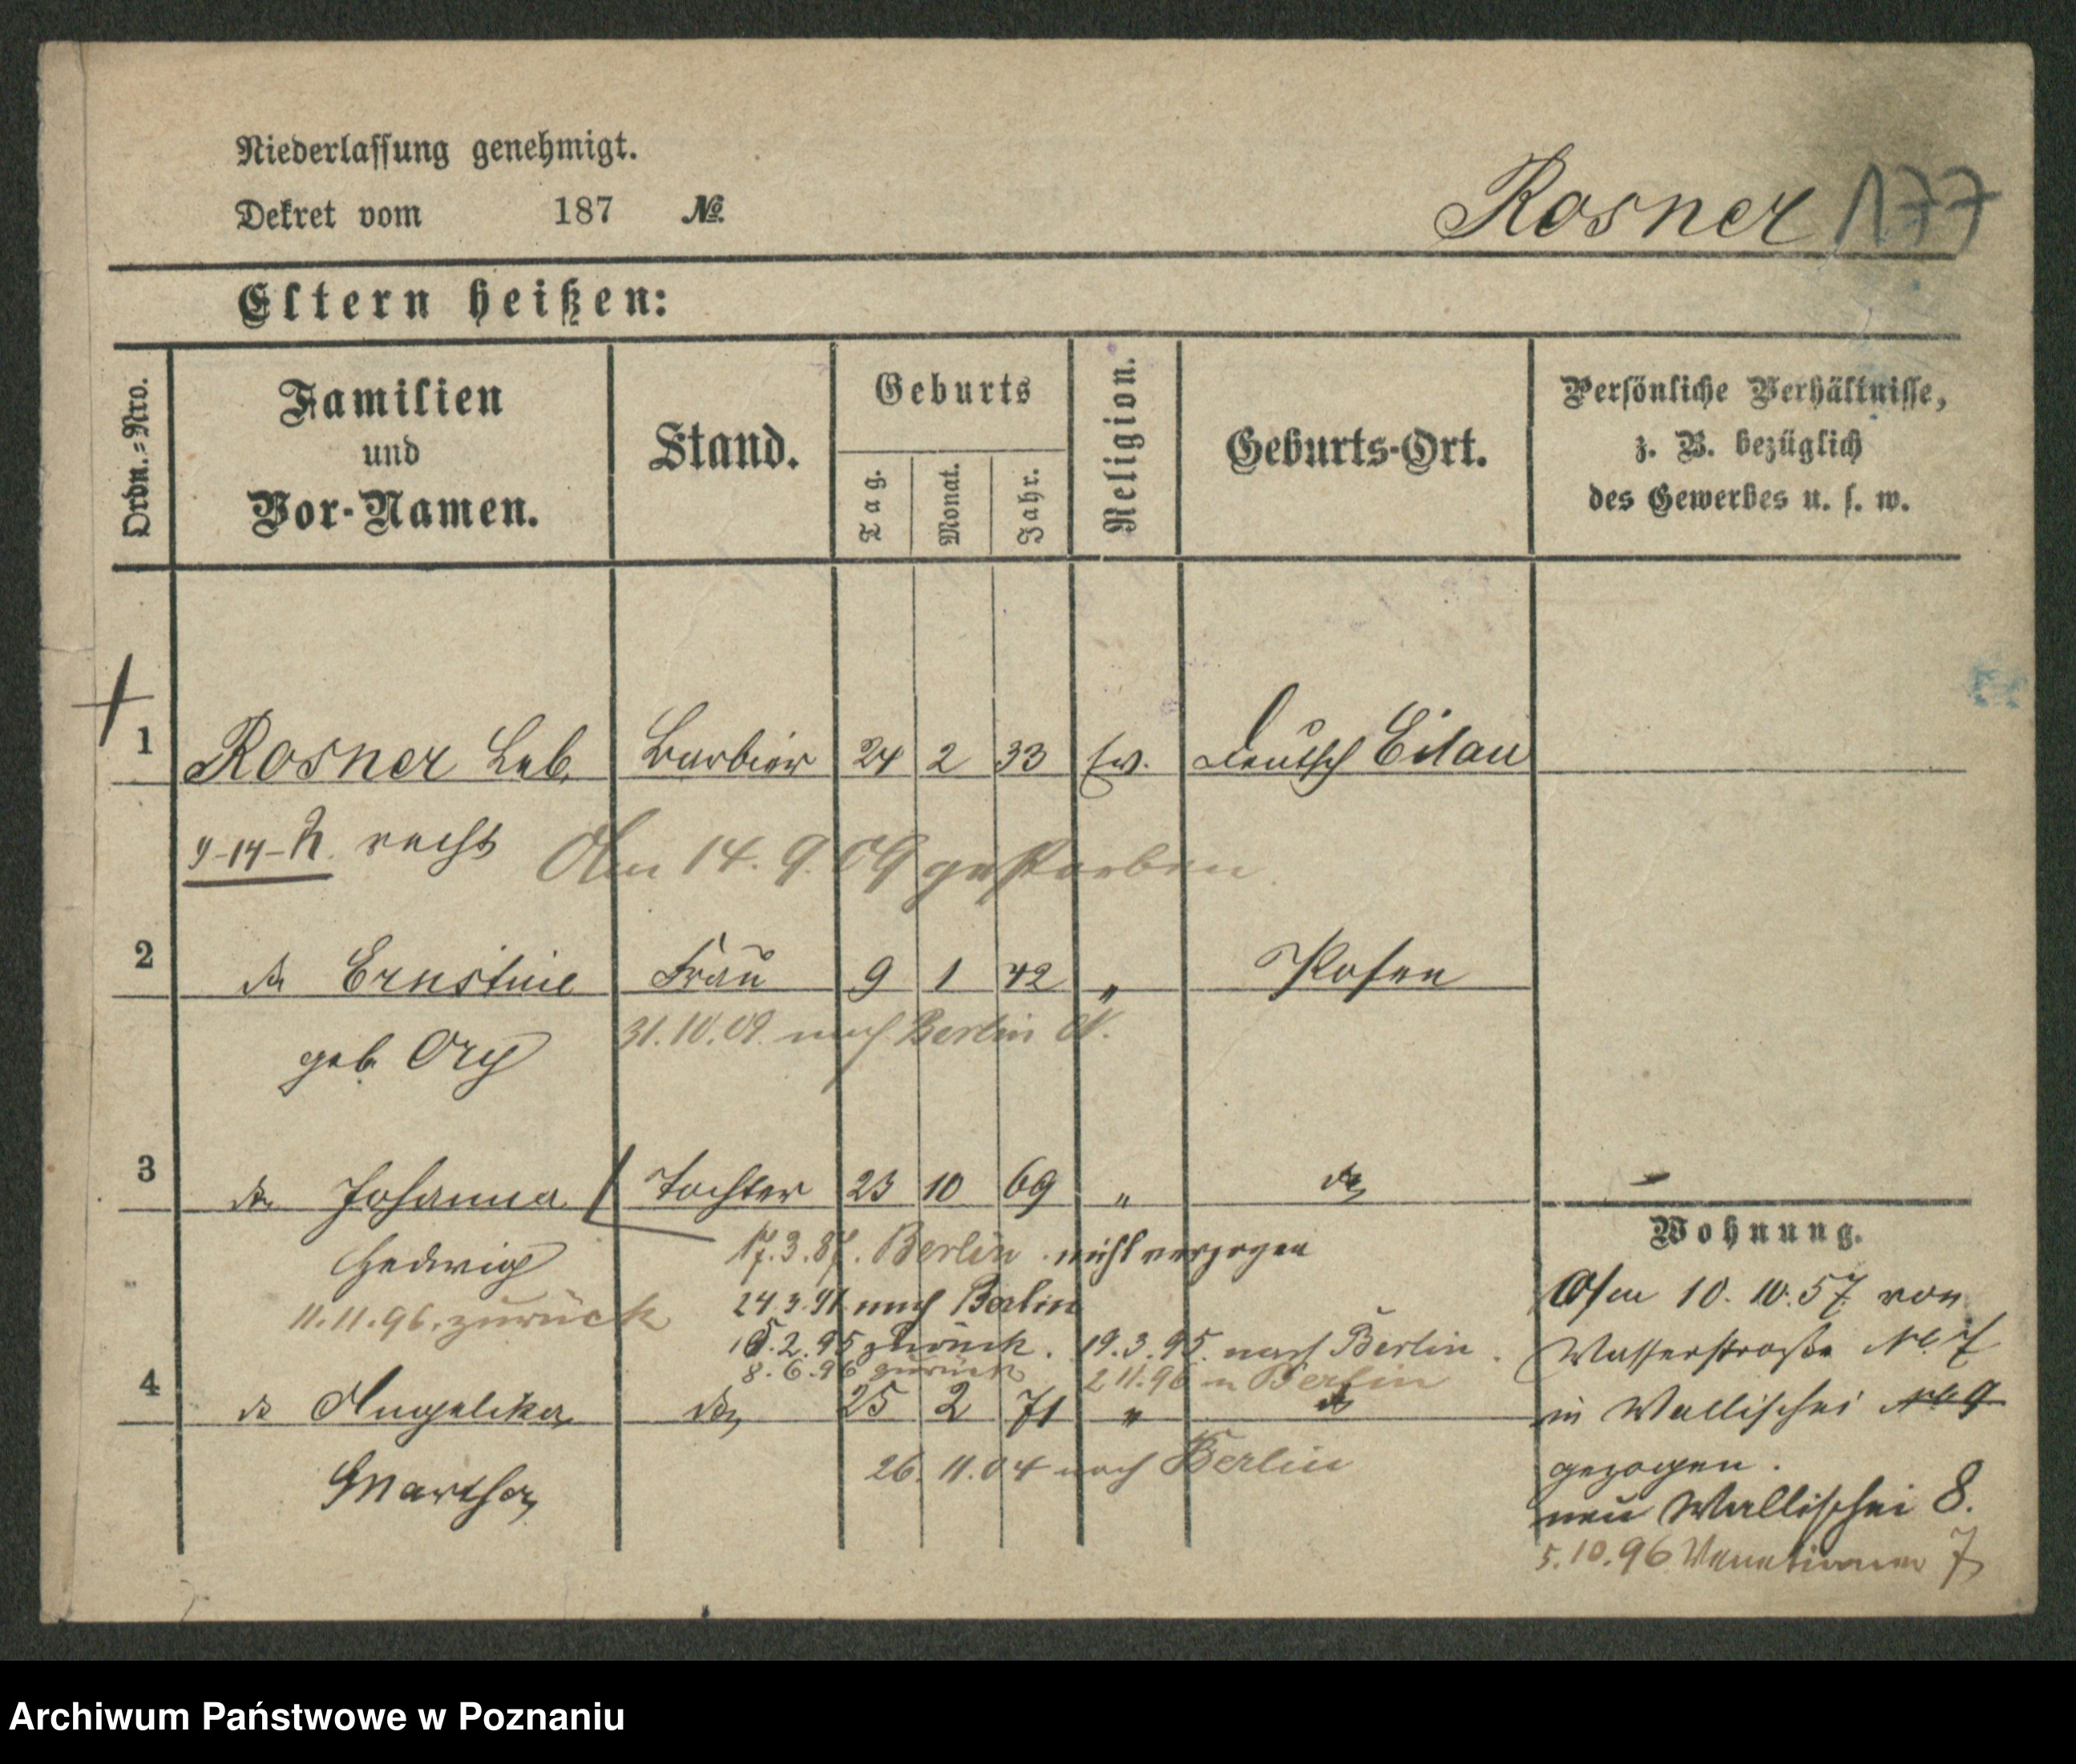 Niederlassung genehmigt.
Dekret vom 187 №
Rosner 177
Eltern heißen:
Ordn.=Nro.
Familien
und
Vor-Namen.
Stand.
Geburts
Tag.
Monat.
Jahr.
Religion.
Geburts-Ort.
Persönliche Verhältnisse,
z. B. bezüglich
des Gewerbes u. s. w.
1 Rosner Barbier 24 2 33 ev. Deutsch Eilau
Am 14. 9. 09 gestorben
2 do Ernstine Frau 9 1 42 " Posen
geb. Ory 31.10.09. nach Berlin
3 do Johanna Tochter 23 10 69 " do
Hedwig 17.3.87. Berlin. nicht verzogen
11.11.96. zurück 24.3.91 nach Berlin
2.95 zurück. 19.3.95. nach Berlin.
8.6.96 zurück 2 11.96 n Berlin
4 do Angelika do 25 2 71 " do
Martha 26.11.04 nach Berlin
Wohnung.
10.10.57. von
Wasserstraße No 7
in Wallischei No 9
gezogen.
neu Wallischei 8.
5.10.96 Venetianer 7
Archiwum Państwowe w Poznaniu